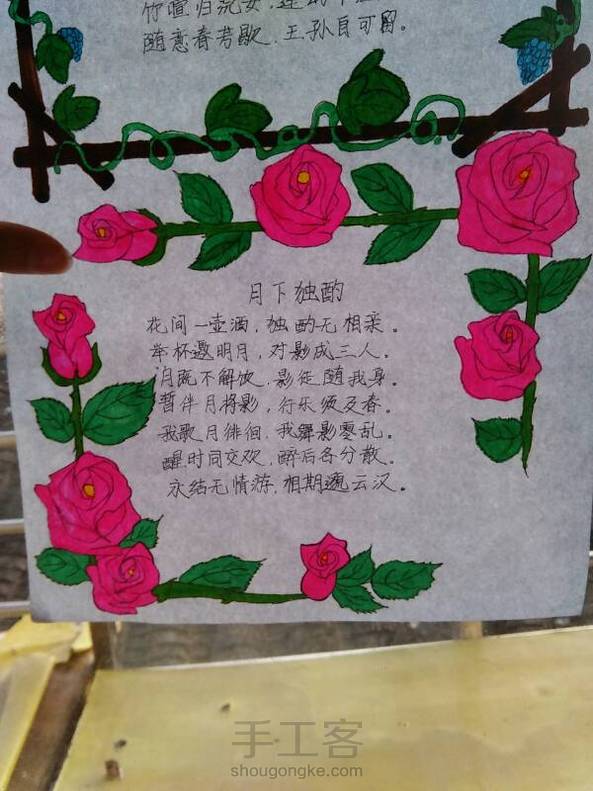 竹喧归浣女，莲动下
随意春芳歇，王孙自可留。
月下独酌
花间一壶酒，独酌无相亲。
举杯邀明月，对影成三人。
月既不解饮，影徒随我身。
暂伴月将影，行乐须及春。
我歌月徘徊，我舞影零乱。
醒时同交欢，醉后各分散。
永结无情游，相期邈云汉。
手工客
shougongke.com